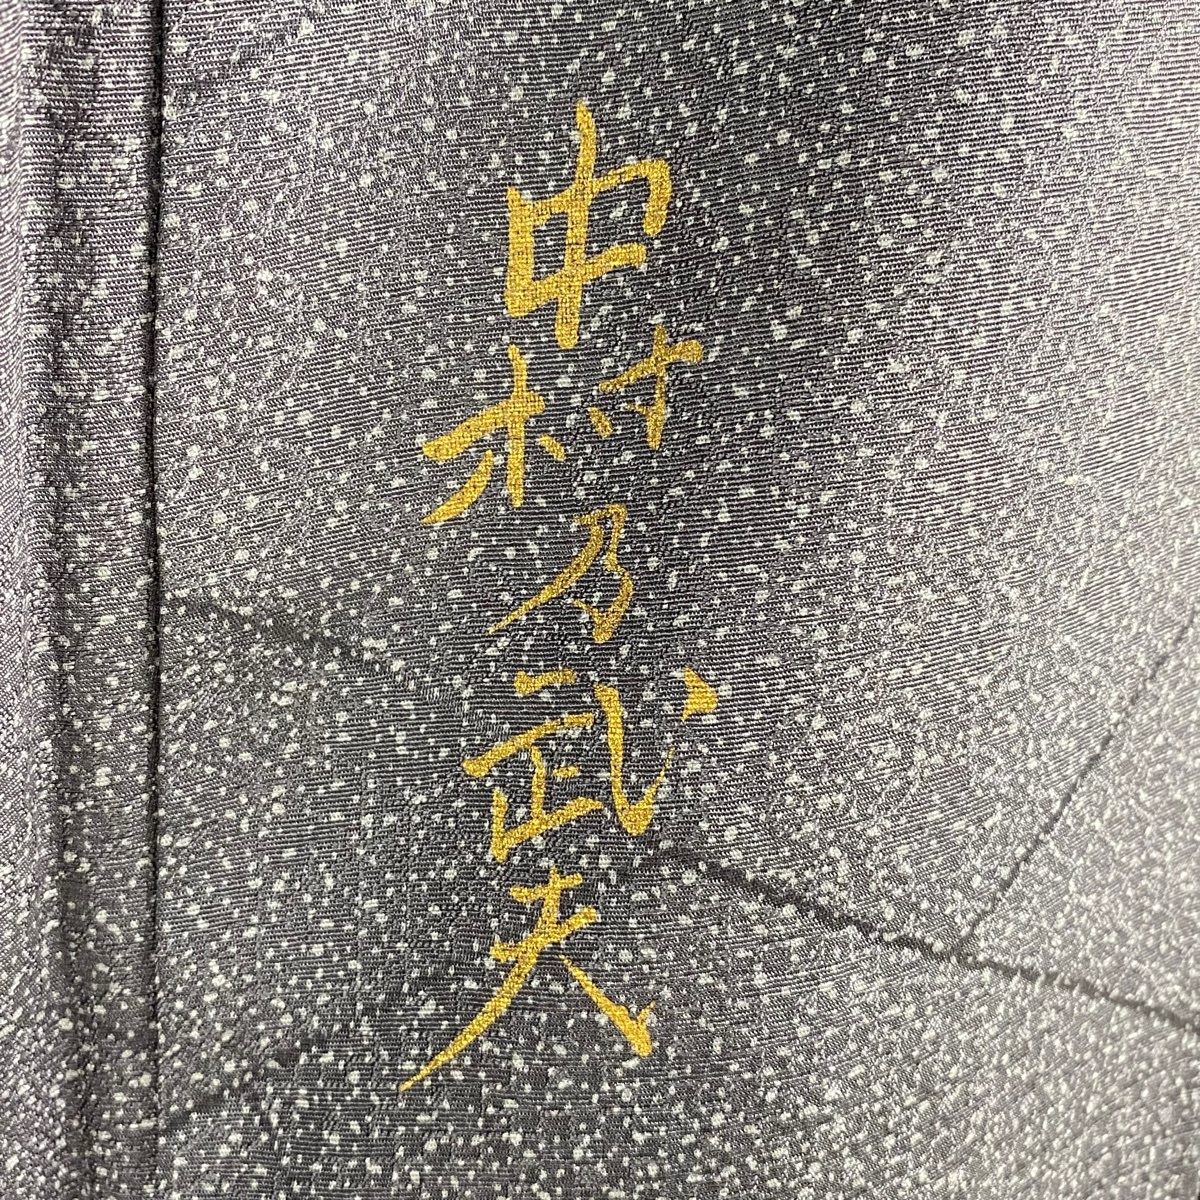 中村乃武夫